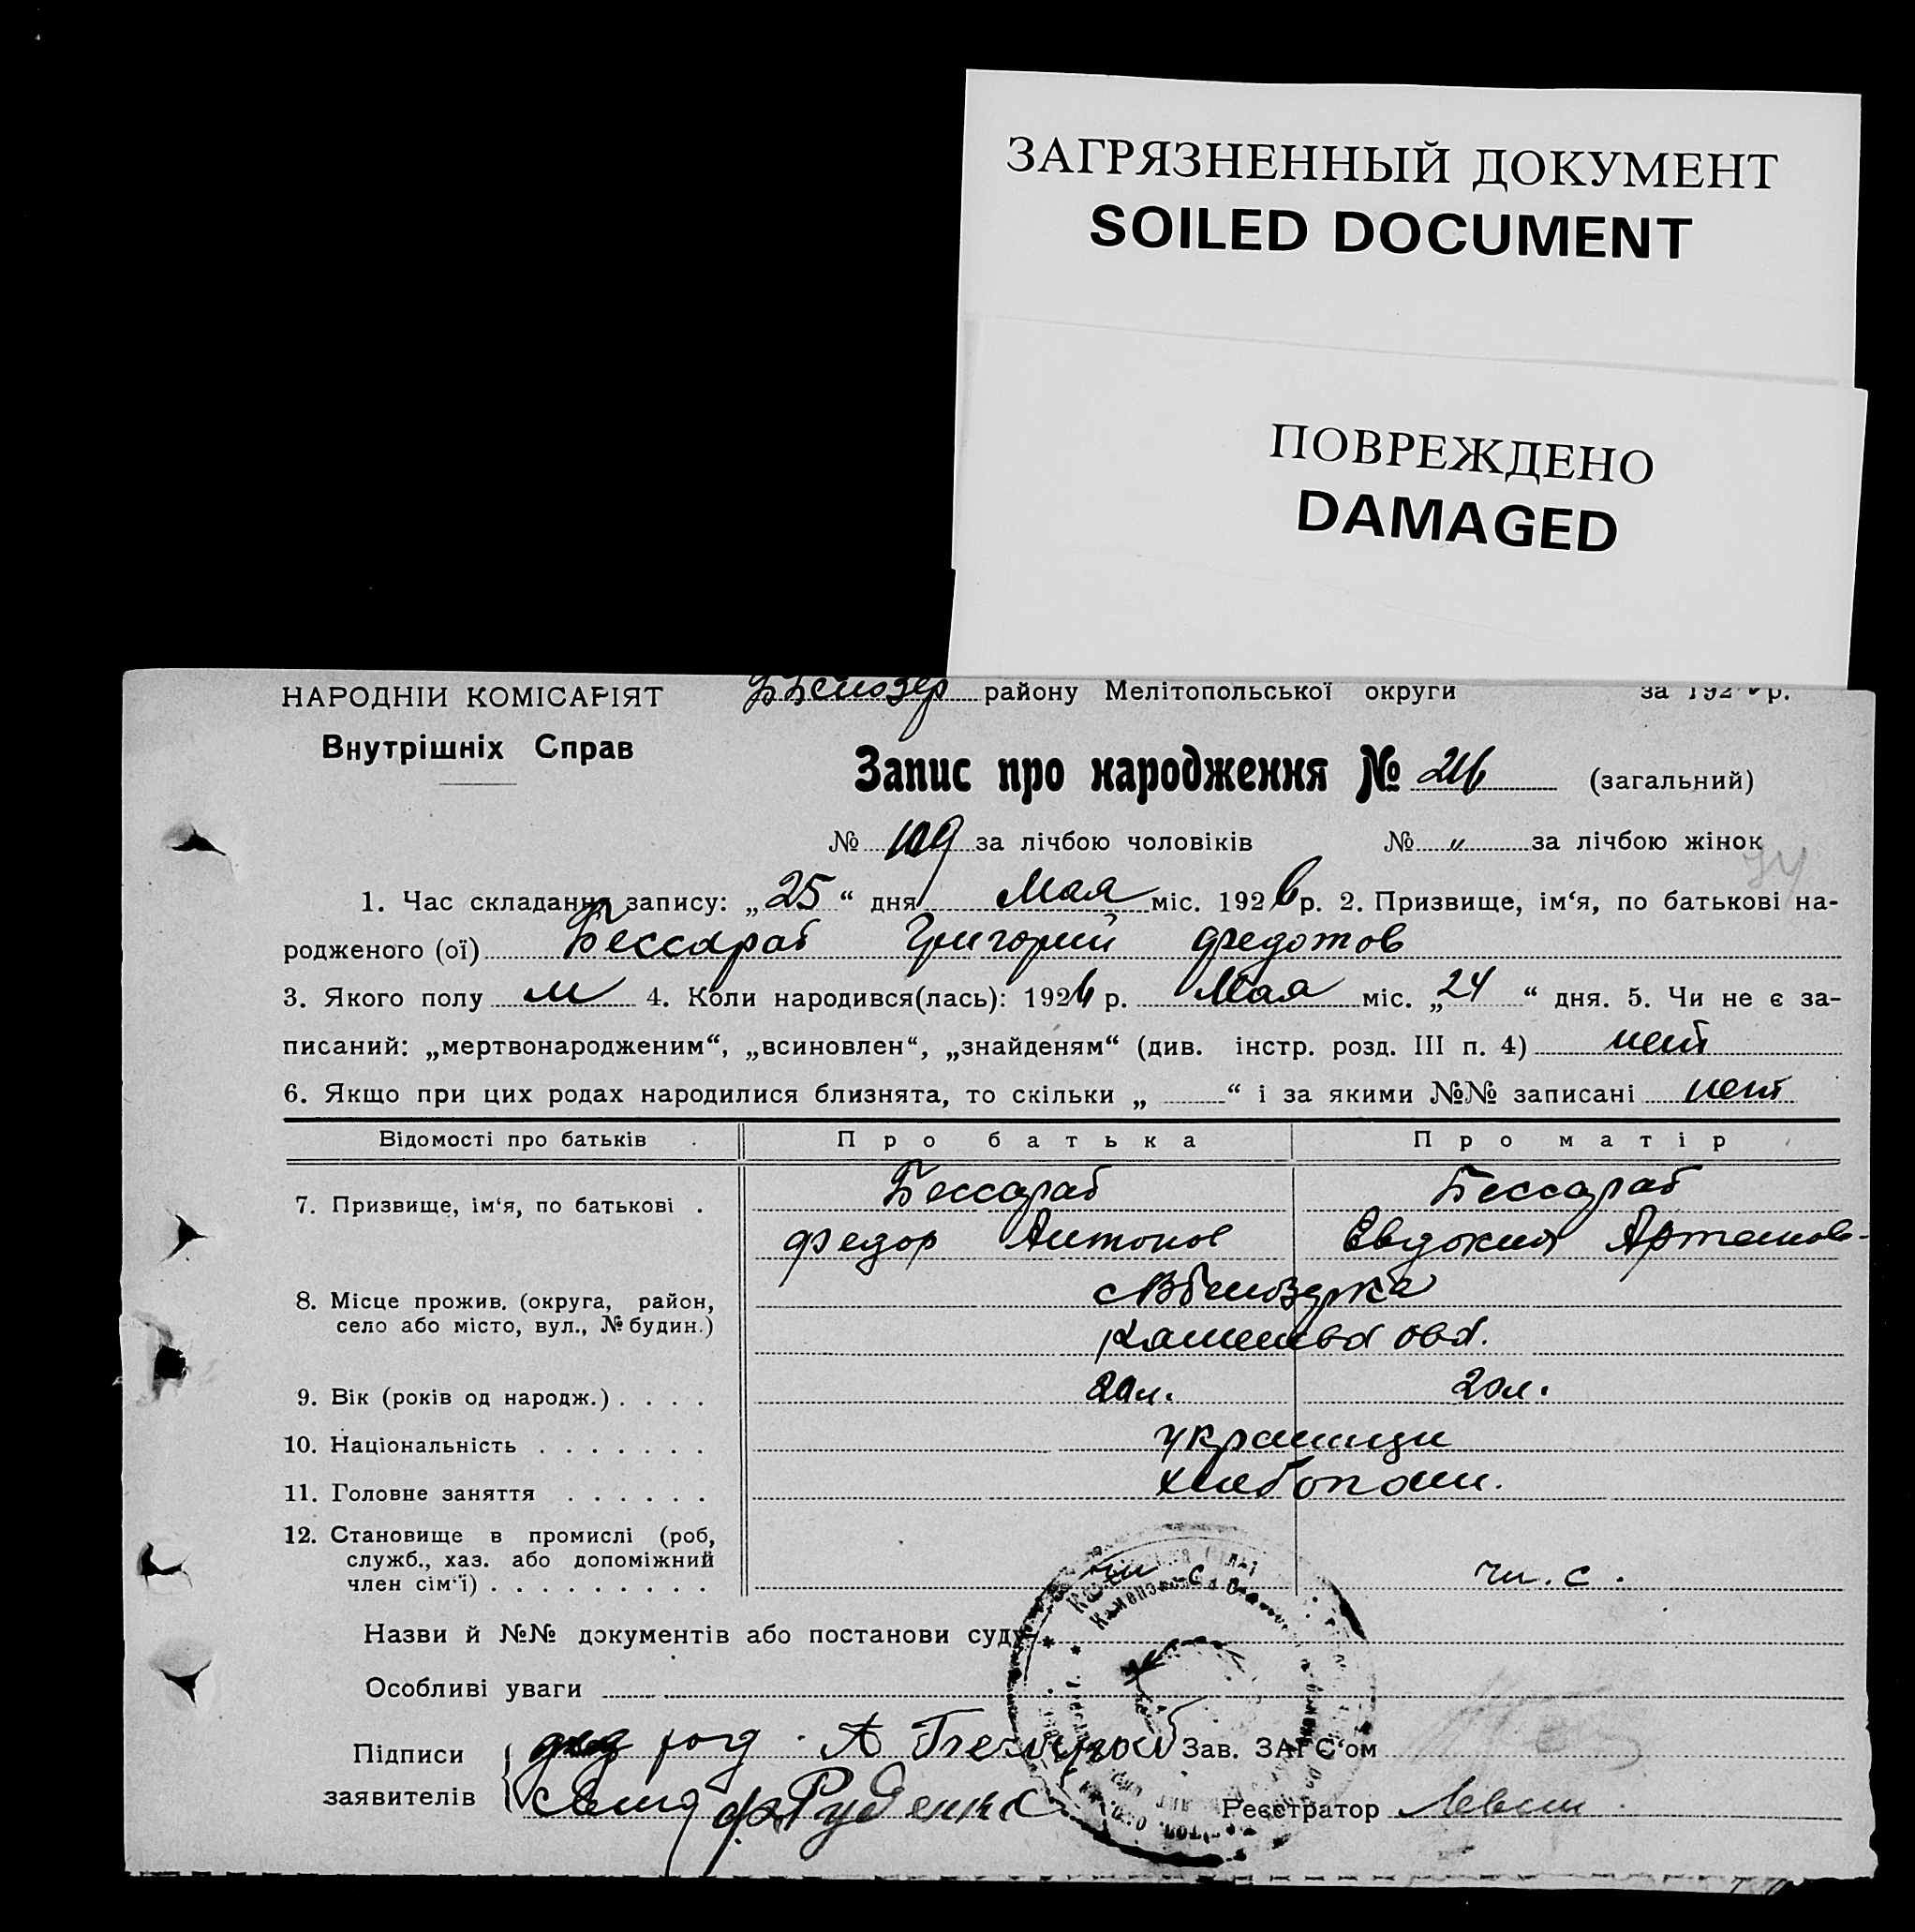 ЗАГРЯЗНЕННЫЙ ДОКУМЕНТ
SOILED DOCUMENT
ПОВРЕЖДЕНО
DAMAGED
НАРОДНІЙ КОМІСАРІЯТ району Мелітопольської округи за 192 р.
Внутрішніх Справ
Запис про народження № (загальний)
№ 109 за лічбою чоловіків № „ за лічбою жінок
1. Час складання запису: „25“ дня Мая міс. 1926 р. 2. Призвище, ім‘я, по батькові на-
родженого (ої) Бессараб Григорий Федотов
3. Якого полу м 4. Коли народився(лась): 1926 р. Мая міс. „24“ дня. 5. Чи не є за-
писаний: „мертвонародженим“, „всиновлен“, „знайденям“ (див. інстр. розд. III п. 4) нет
6. Якщо при цих родах народилися близнята, то скільки „ “ і за якими №№ записані нет
Відомості про батьків Про батька Про матір
Бессараб Бессараб
7. Призвище, ім‘я, по батькові .
Федор Антонов Евдокия Артемов-
8. Місце прожив. (округа, район,
село або місто, вул., № будин.)
9. Вік (років од народж.) . . . . 20л. 20л.
10. Національність . . . . . . . украинцы
11. Головне заняття . . . . . . хлебопаш.
12. Становище в промислі (роб,
служб., хаз. або допоміжний
член сім‘ї) . . . . . . . . . чл. с. чл. с.
Назви й №№ документів або постанови суду
Особливі уваги
Підписи А Зав. ЗАГС‘ом
заявителів Руденко Реєстратор